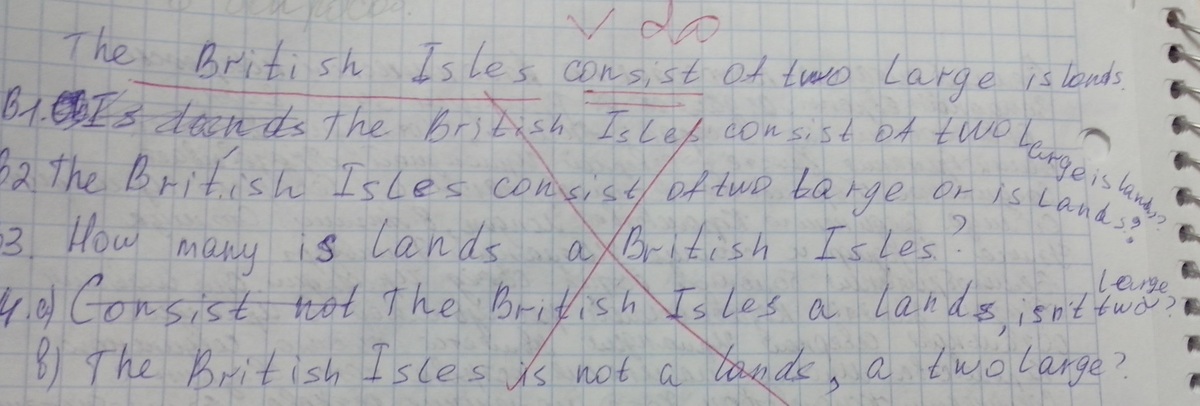 ✓ do
The British Isles consist of two large islands.
B1. Is the British Isles consist of two large islands?
B2 The British Isles consist of two large or islands?
B3. How many islands a British Isles?
4. a) Consist not The British Isles a lands, isn't large two?
b) The British Isles is not a lands, a two large?